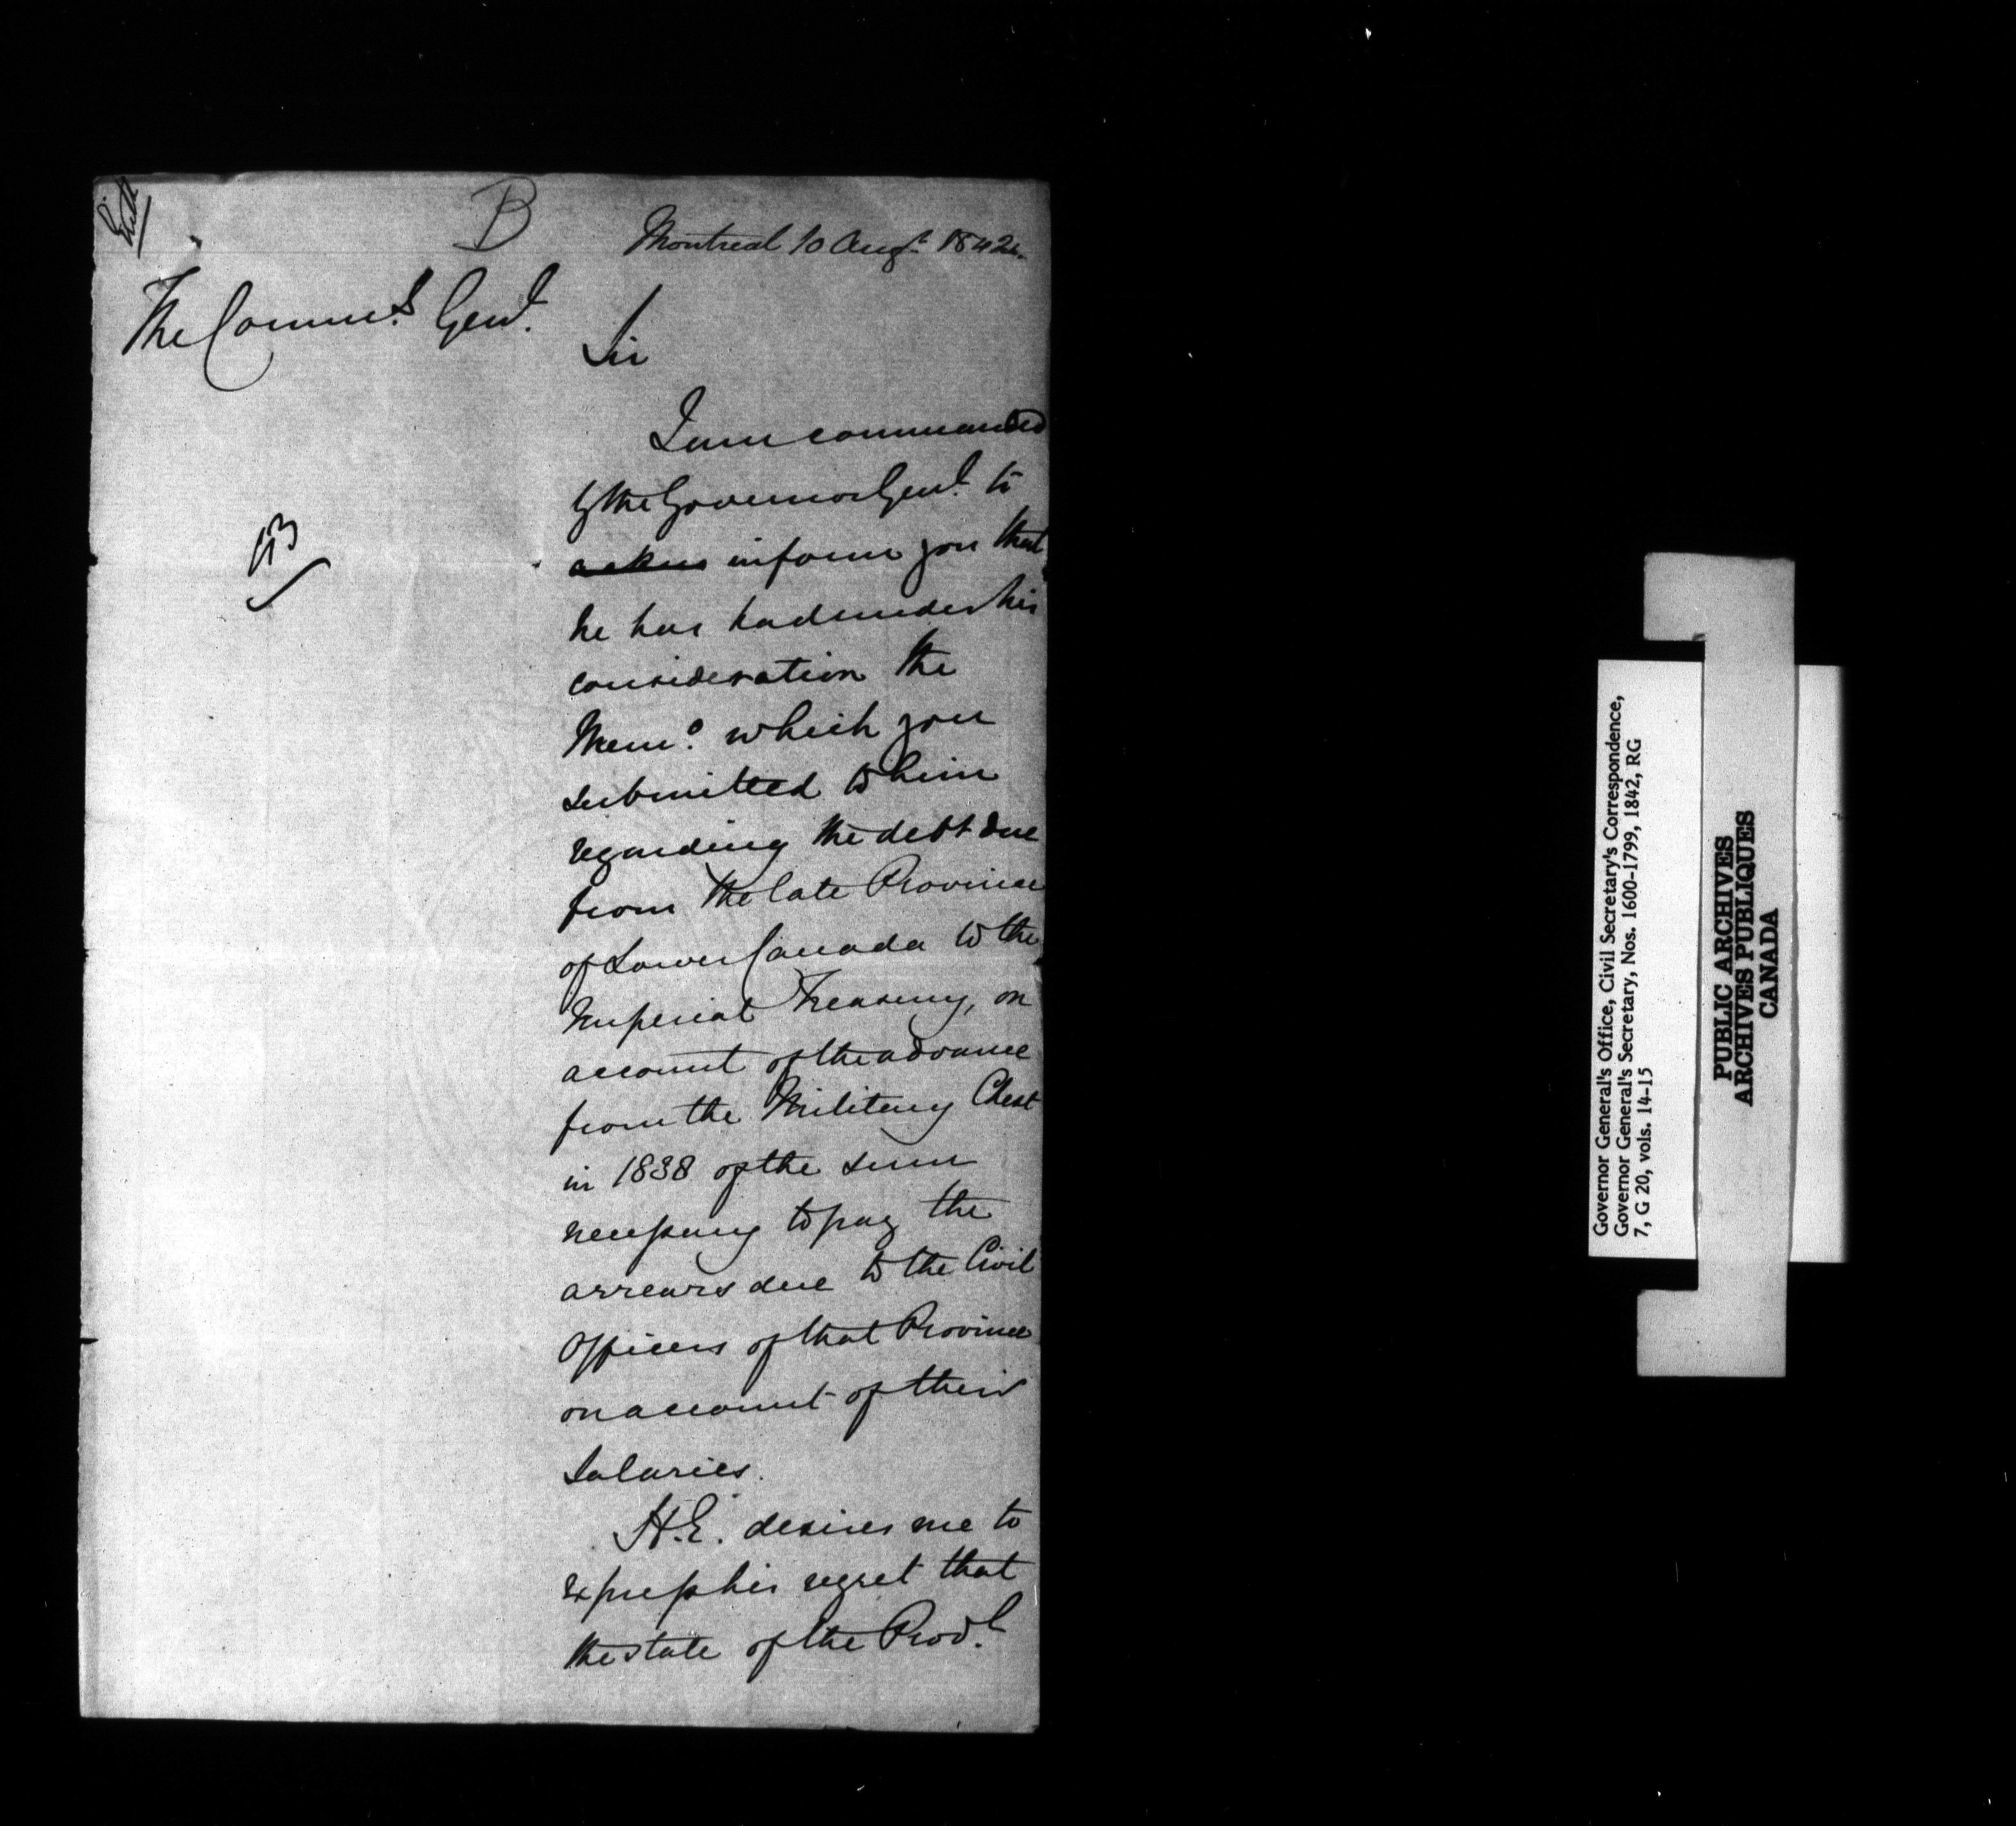 B
Montreal 10 Augt 1842.
The Commss Genl.
Sir
I am commanded
by the Governor Genl. to
inform you that
he has had under his
consideration the
Memo. which you
submitted to him
regarding the debt due
from the late Province
of Lower Canada to the
Imperial Treasury, on
account of the advance
from the Military Chest
in 1838 of the sum
necessary to pay the
arrears due to the Civil
Officers of that Province
on account of their
Salaries.
H.E. desires me to
express his regret that
the state of the Provl.
Governor General's Office, Civil Secretary's Correspondence,
Governor General's Secretary, Nos. 1600-1799, 1842, RG
7, G 20, vols. 14-15
PUBLIC ARCHIVES
ARCHIVES PUBLIQUES
CANADA